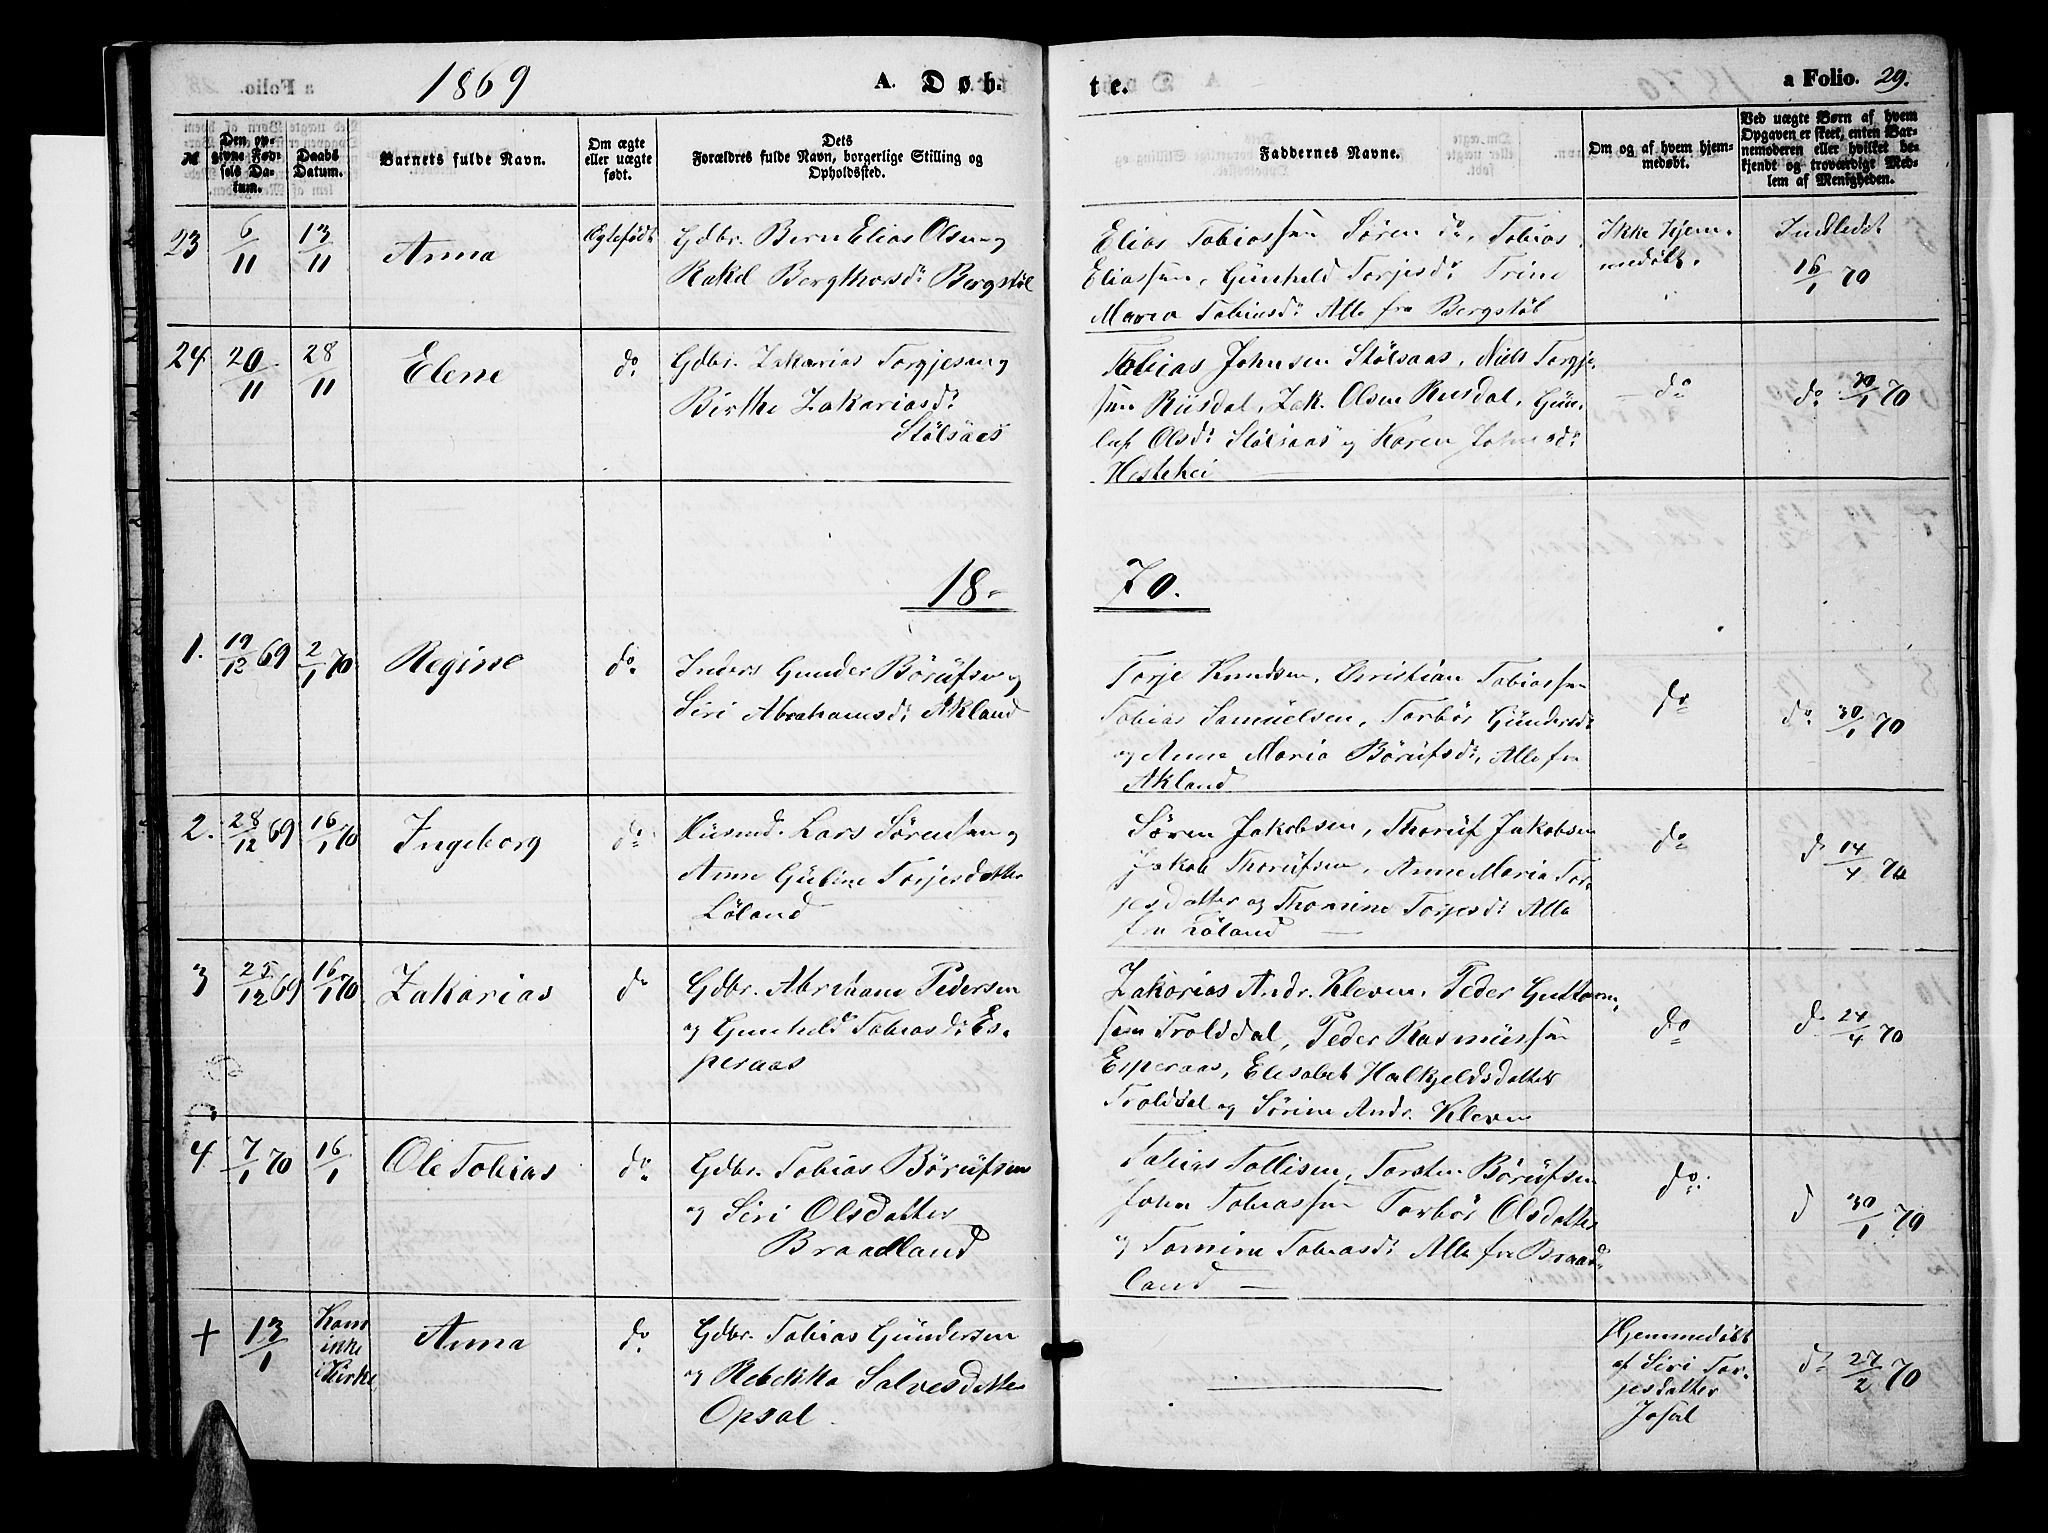 1869
A. Døb-
te.
a Folio. 29.
№
Den opgivne Fødsels Datum.
Daabs Datum.
Barnets fulde Navn.
Om ægte eller uægte født.
Dets Forældres fulde Navn, borgerlige Stilling og Opholdssted.
Faddernes Navne.
Om og af hvem hjemmedøbt.
Ved uægte Børn af hvem Opgaven er skeet, enten Barnemoderen eller hvilket bekjendt og troværdigt Medlem af Menigheden.
23 6/11 13/11 Anna Ægtefødt
Gdbr. Bern Elias Olsen og
Rakel Bergthorsdr Bergstøl
Elias Tobiassen Søren do, Tobias
Eliassen, Gunheld Torjesdr Trine
Maria Tobiasdr Alle fra Bergstøl
Ikke hjem-
medøbt.
Indledet
16/1 70
24 20/11 28/11 Elene do
Gdbr. Zakarias Torgjesen og
Birthe Zakariasdr
Stølsaas
Tobias Johnsen Stølsaas, Niels Torgje-
sen Riisdal, Zak. Olsen Riisdal, Gun-
luf Olsdr Stølsaas og Karen Johnsdr
Hestehei
do
do 30/1 70
18-
70.
1. 19/12 69 2/1 70 Regine do
Inders Gunder Börufsen og
Siri Abrahamsdr Akland
Torje Knudsen, Christian Tobiassen
Tobias Samuelsen, Torbör Gundersdr
og Anne Maria Börufsdr, Alle fra
Akland
do
do 30/1 70
2. 28/12 69 16/1 70 Ingeborg do
Husmd. Lars Sörensen og
Anne Gubine Torjesdatter
Löland
Sören Jakobsen, Thoruf Jakobsen
Jakob Thorufsen, Anne Maria Tor-
jesdatter og Thomine Torjesdr Alle
fra Löland
do
do 14/4 70
3 25/12 69 16/1 70 Zakarias do
Gdbr. Abraham Pedersen
og Gunheld Tobiasdr Es-
peraas
Zakarias Andr. Kleven, Peder Guttorm-
sen Trolddal, Peder Rasmussen
Esperaas, Elisabet Halkjeldsdatter
Trolddal og Sørine Andr. Kleven
do
do 24/4 70
4 7/1 70 16/1 Ole Tobias do
Gdbr. Tobias Börufsen
og Siri Olsdatter
Braadland
Tobias Tollisen, Torsten Börufsen
John Tobiassen Torbör Olsdatter
og Tomine Tobiasdr Alle fra Braad-
land
do
d 30/1 70
+ 13/1 Kom
ikke
i Kirke
Anna do
Gdbr. Tobias Gundersen
og Rebekka Salvesdatter
Opsal
Hjemmedøbt
af Siri Tor-
jesdatter
Josal
do 27/2 70